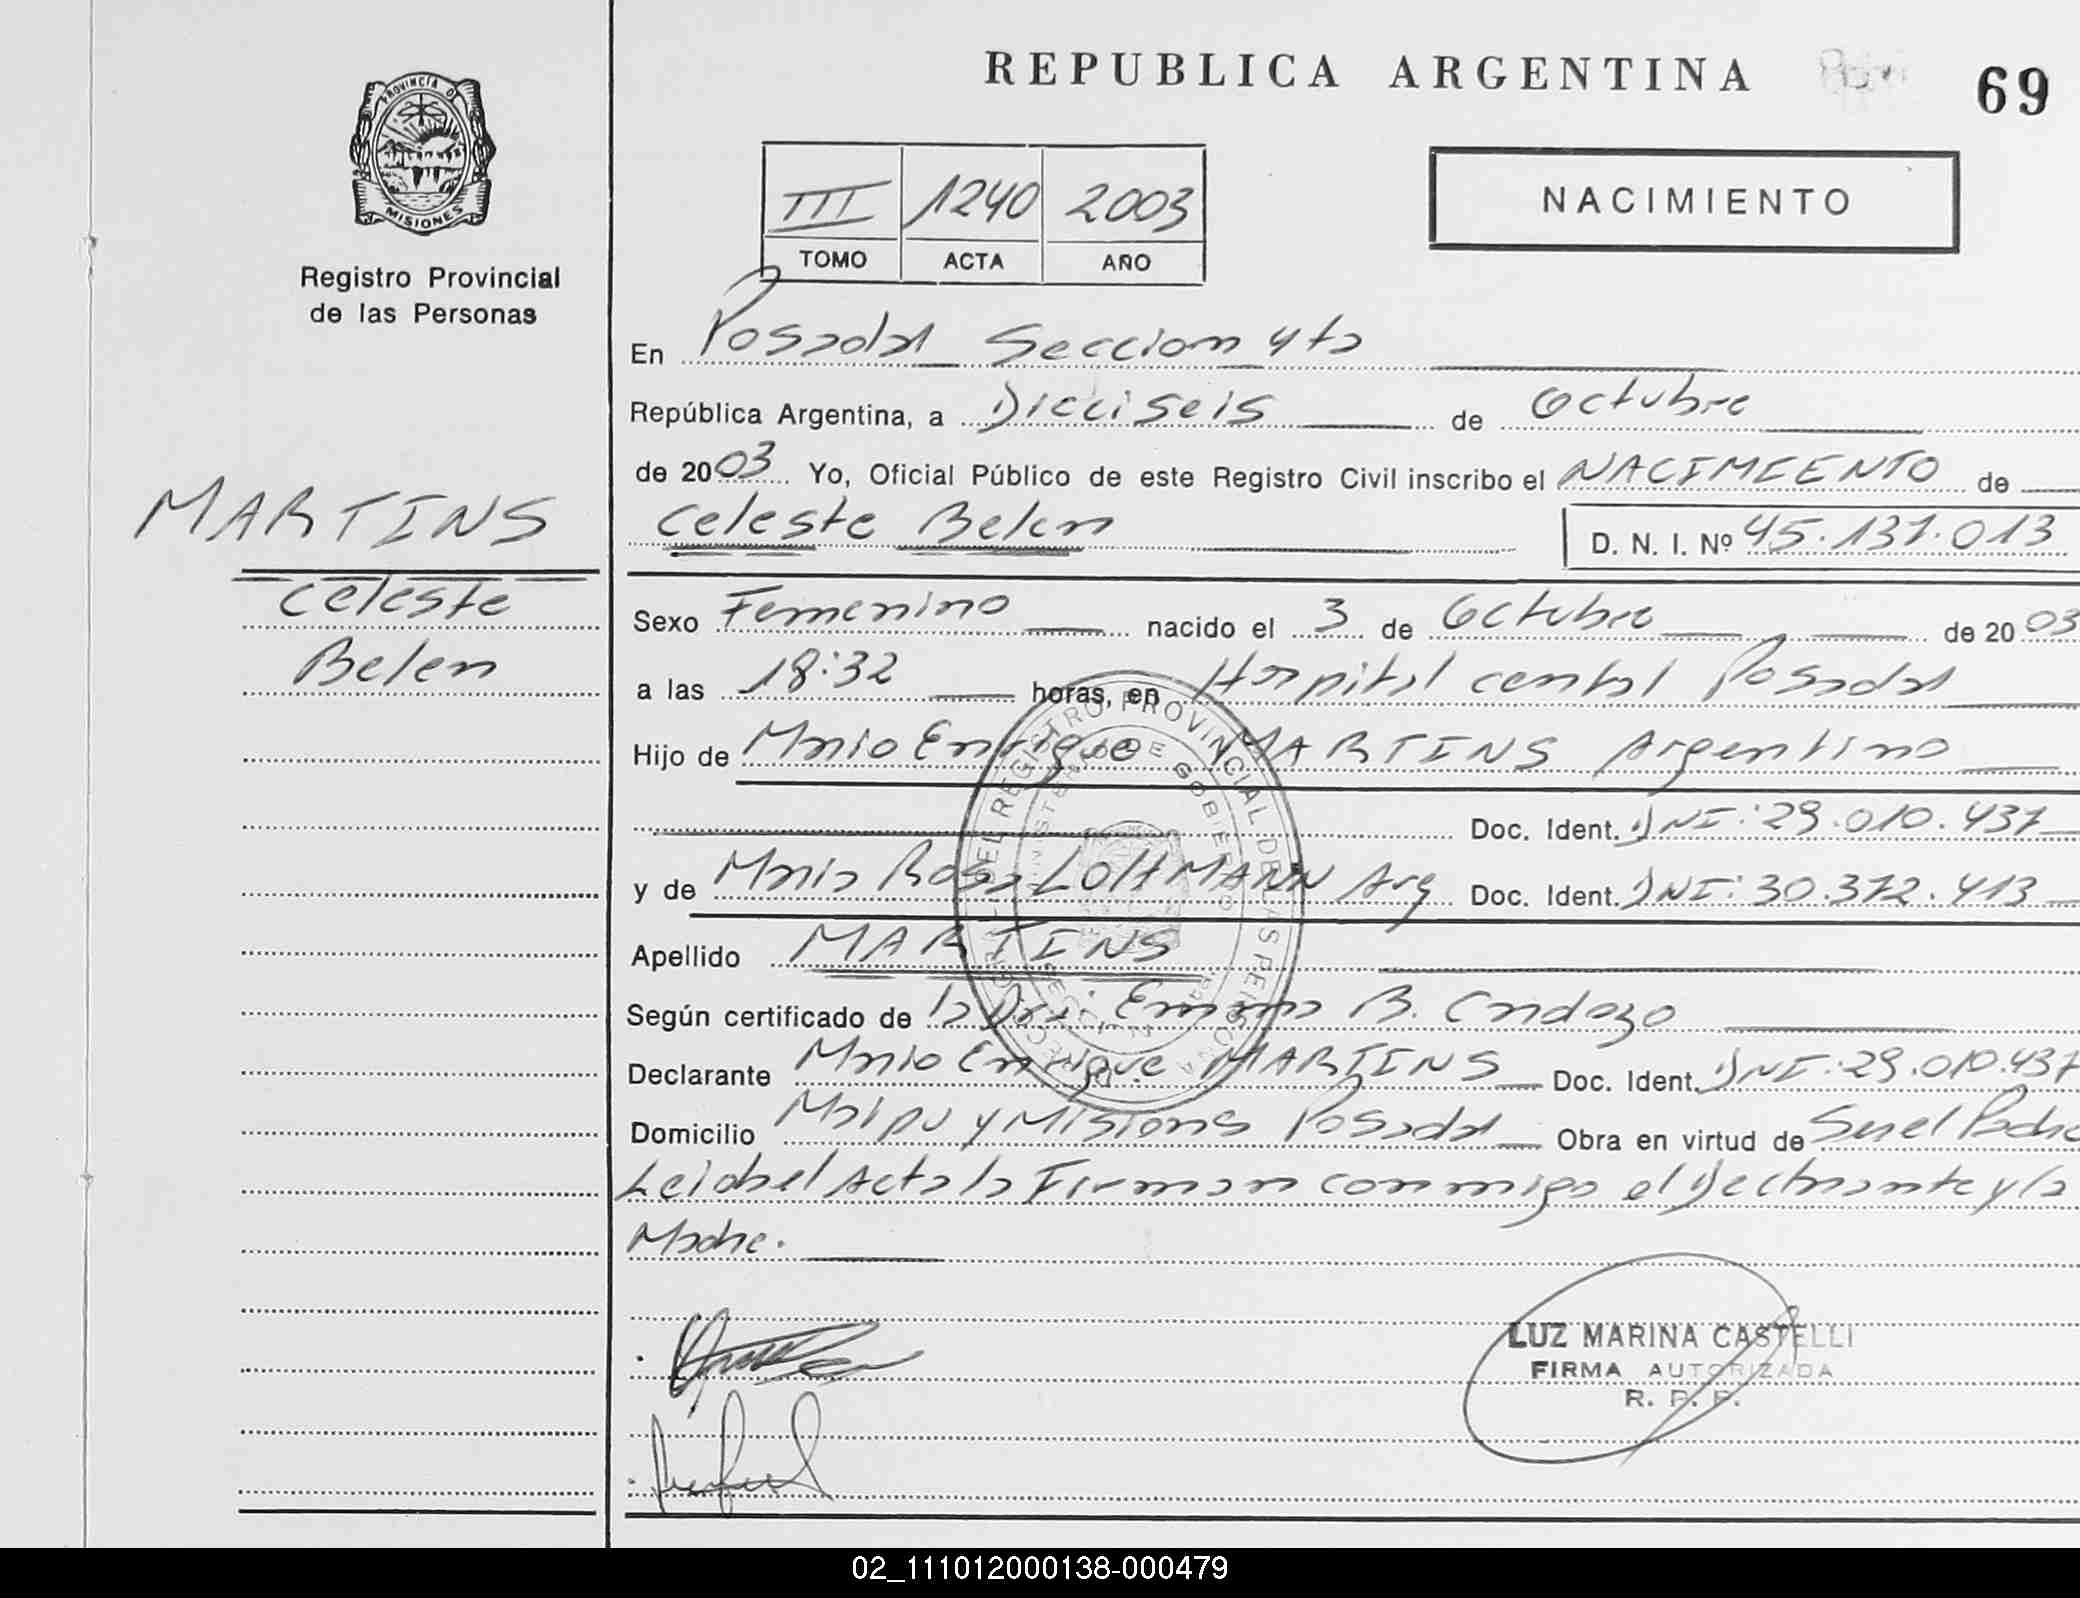 REPUBLICA ARGENTINA
69
PROVINCIA DE
MISIONES
Registro Provincial
de las Personas
III 1240 2003
TOMO ACTA AÑO
NACIMIENTO
En Posadas Seccion 4ta
República Argentina, a Dieciseis de Octubre
de 2003 Yo, Oficial Público de este Registro Civil inscribo el NACIMIENTO de
MARTINS
Celeste Belen D. N. I. Nº 45.137.013
Celeste
Belen
Sexo Femenino nacido el 3 de Octubre de 2003
a las 18:32 horas, en Hospital central Posadas
Hijo de Mario Enrique MARTINS Argentino
Doc. Ident. DNI: 29.010.437
y de Maria Rosa LOHMANN Arg Doc. Ident. DNI: 30.372.413
Apellido MARTINS
Según certificado de la Dra: B.
Declarante Mario Enrique MARTINS Doc. Ident. DNI: 29.010.437
Domicilio Maipu y Misiones Posadas Obra en virtud de Ser el Padre
Leida el Acta la Firman conmigo el Declarante y la
Madre.
REGISTRO PROVINCIAL DE LAS PERSONAS
MINISTERIO DE GOBIERNO
LUZ MARINA CASTELLI
FIRMA AUTORIZADA
R. P. P.
02_111012000138-000479